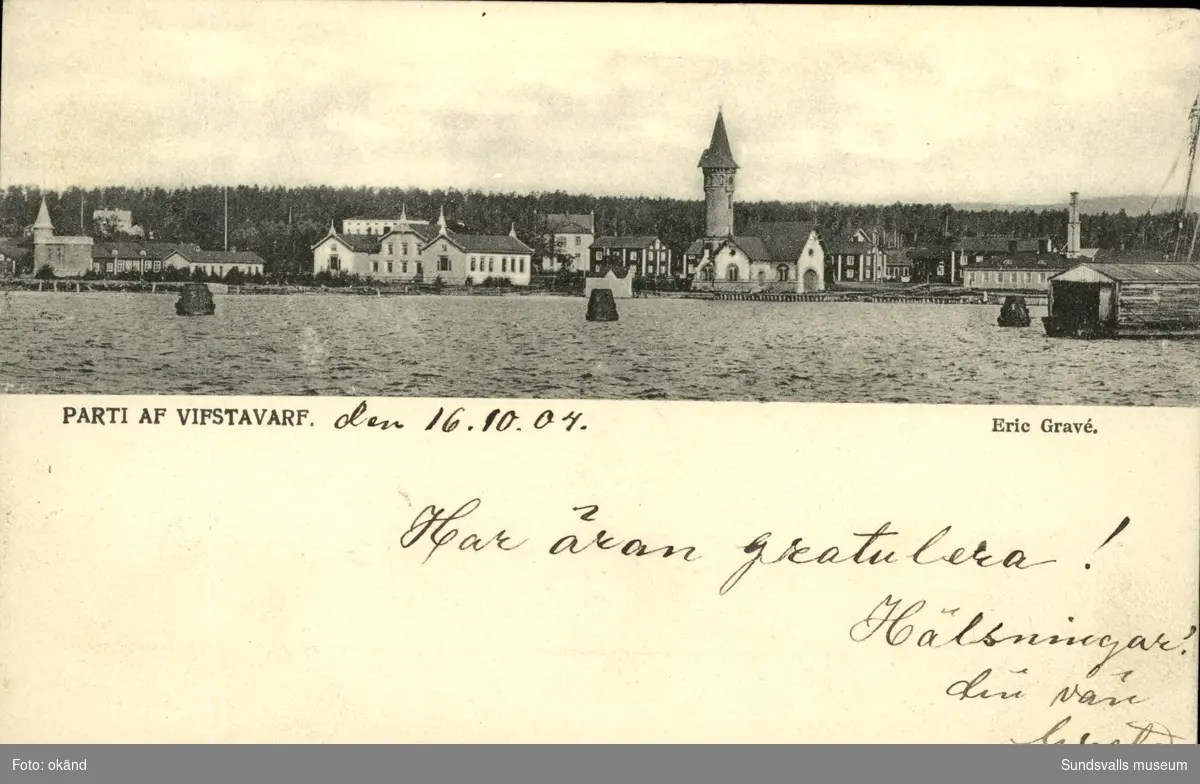 PARTI AF VIFSTAVARF. den 16.10.04.
Eric Gravé.
Har äran gratulera!
Hälsningar!
din vän
Foto: okänd
Sundsvalls museum